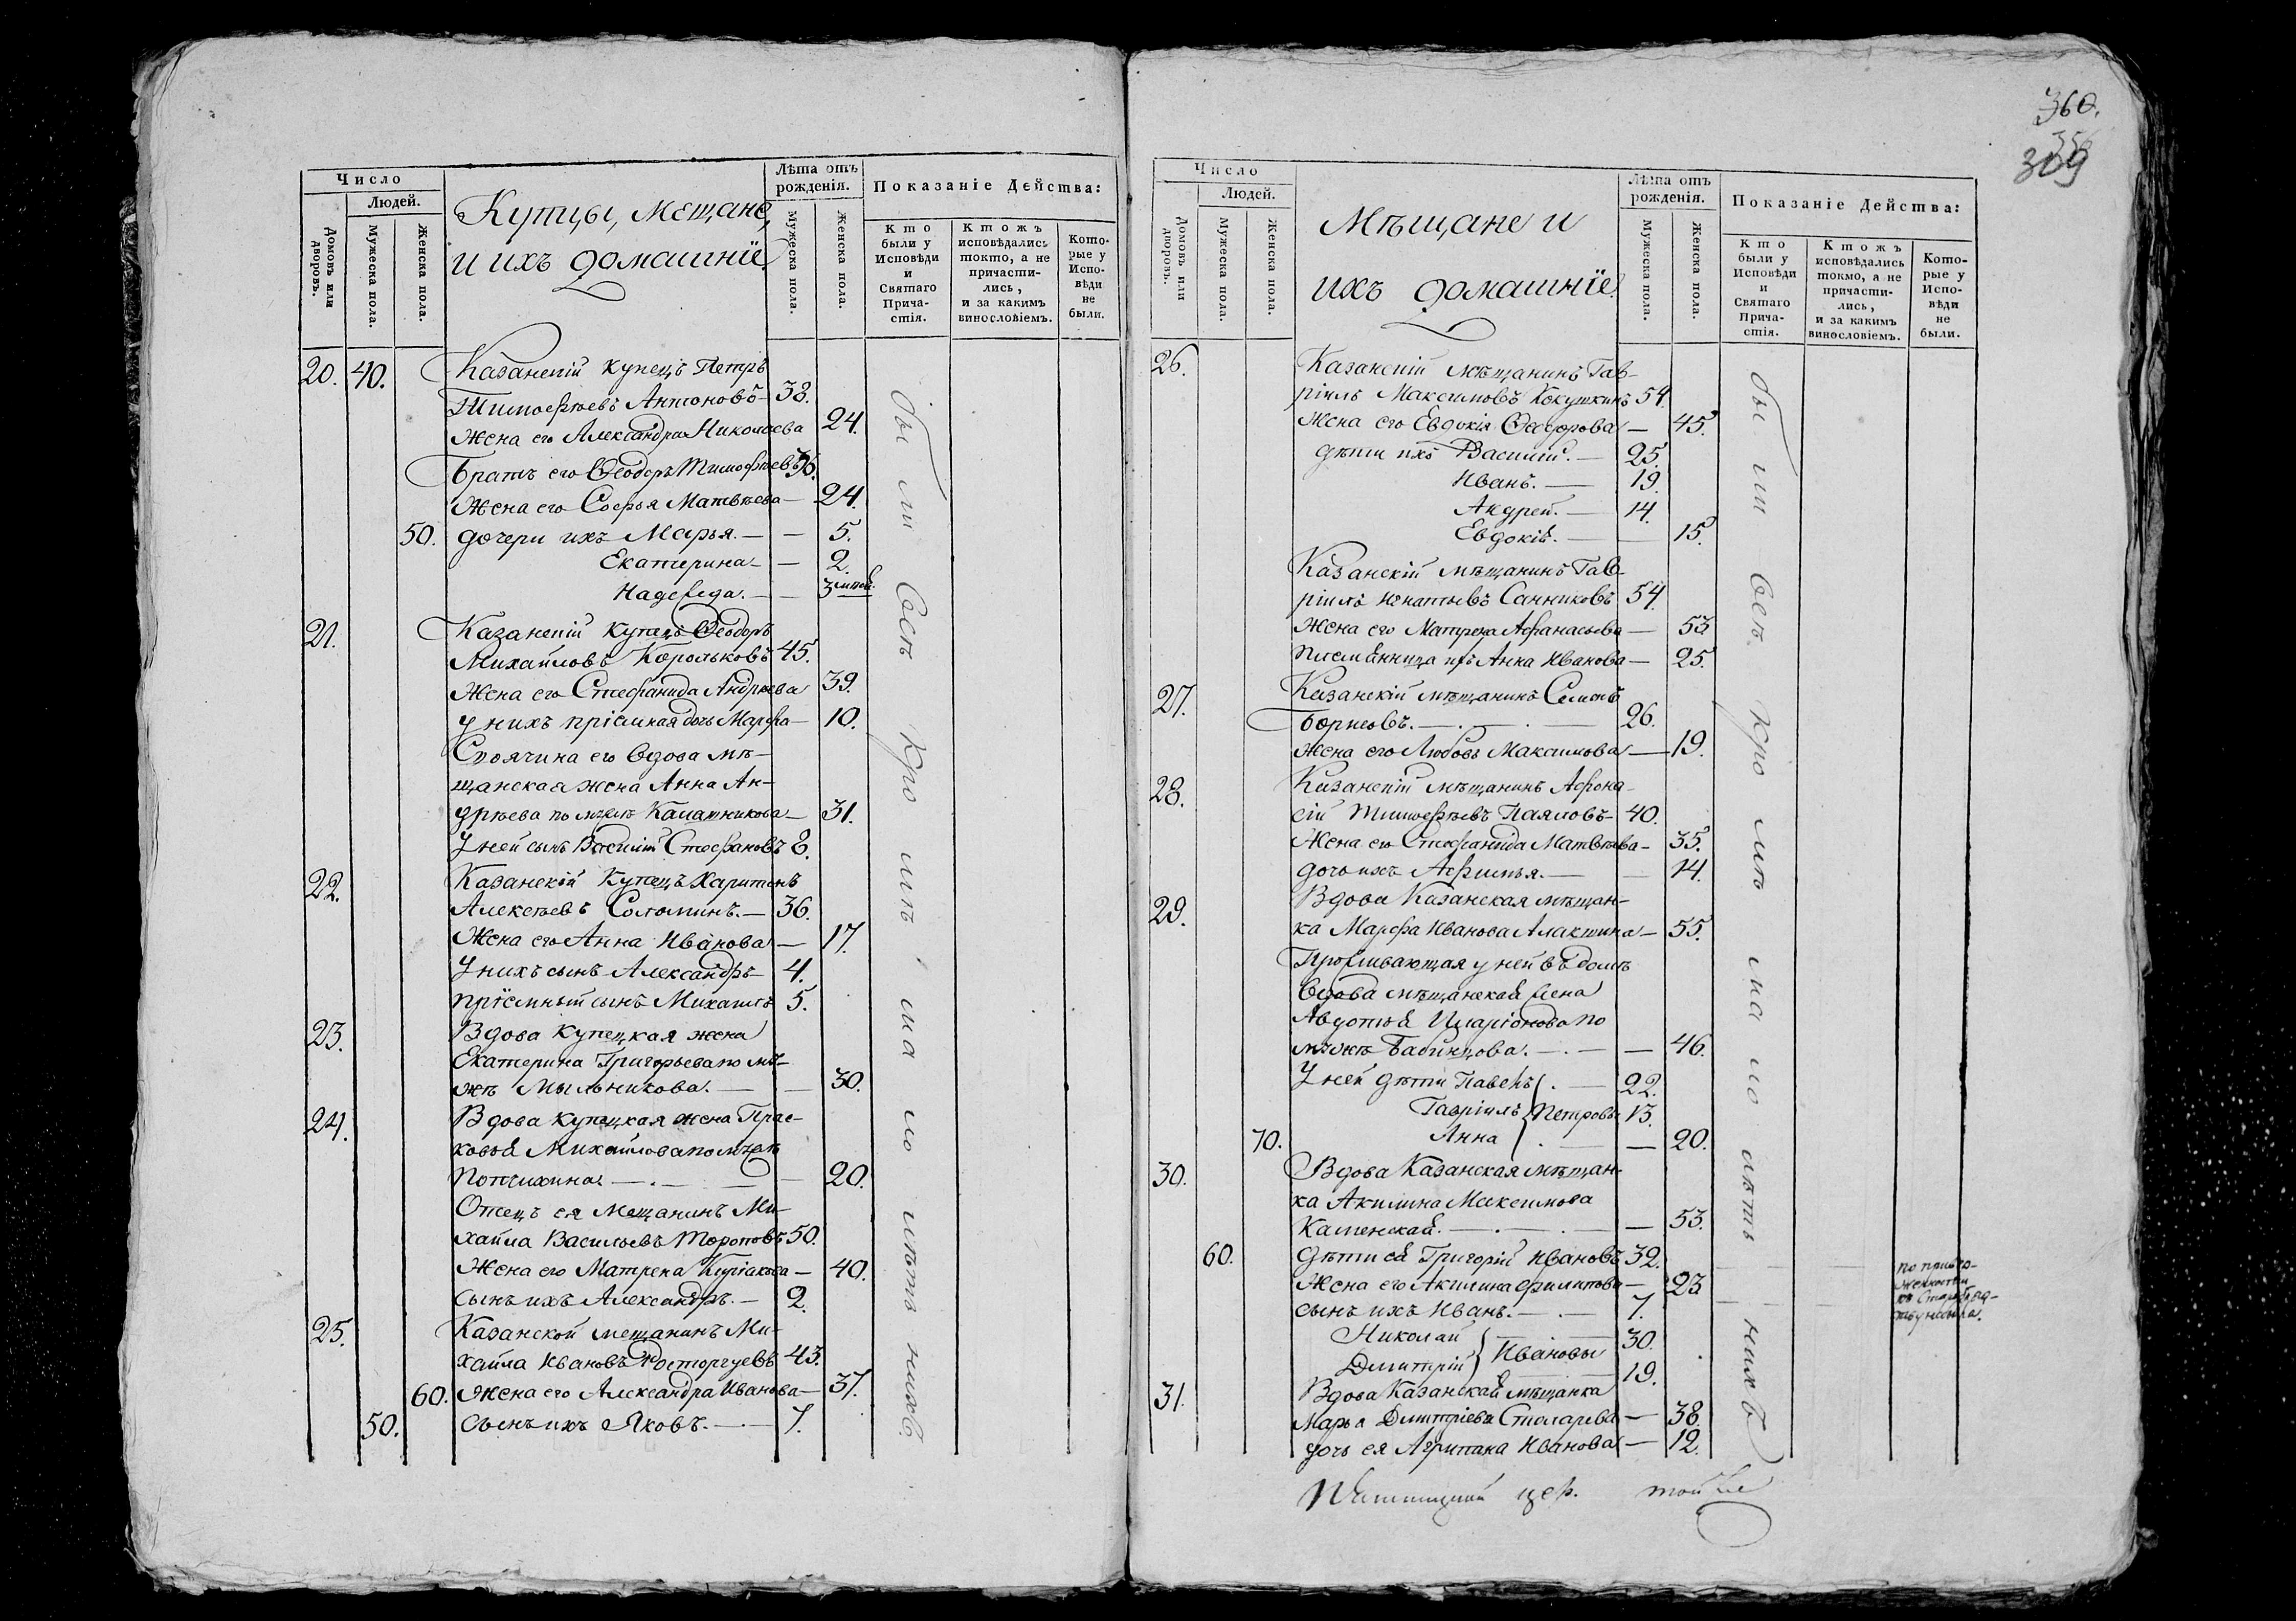 360.
309
Число
Людей.
Домовъ или дворовъ.
Мужеска пола.
Женска пола.
Купцы, Мещане,
и ихъ домашнiе
Лѣта отъ рожденiя.
Мужеска пола.
Женска пола.
Показанiе Действа:
Кто были у Исповѣди и Святаго Причастiя.
Ктожъ исповѣдались токто, а не причастились, и за какимъ винословiемъ.
Которые у Исповѣди не были.
20. 40. Казанскiй купецъ Петръ
Тимофѣевъ Антоновъ 38.
Жена его Александра Николаева 24.
Братъ его Ѳеодоръ Тимофѣевъ 36.
Жена его Софья Матвѣева 24.
50. дочери ихъ Марья. 5.
Екатерина 2.
Надежда.
21. Казанскiй купецъ Ѳеодоръ
Михайловъ Корольковъ 45.
Жена его Стефанида Андрѣева 39.
у нихъ прiемная дочь Марфа 10.
Своячина его вдова мѣ-
щанская жена Анна Ан-
дрѣева по мужѣ Калашникова 31.
У ней сынъ Василiй Стефановъ 8.
22. Казанскiй Купецъ Харитонъ
Алексѣевъ Соломинъ. 36.
Жена его Анна Иванова 17.
У нихъ сынъ Александръ 4.
прiемный сынъ Михаилъ 5.
23. Вдова купецкая жена
Екатерина Григорьева по му-
жѣ Мыльникова. 30.
24. Вдова купецкая жена Прас-
ковья Михайлова по мужѣ
20.
Отецъ ея Мещанинъ Ми-
хайла Васильевъ Тороповъ 50.
Жена его Матрена 40.
сынъ ихъ Александръ. 2.
25. Казанской мещанинъ Ми-
хайла Ивановъ Расторгуевъ 43.
60. Жена его Александра Иванова 37.
50. сынъ ихъ Яковъ. 7.
были всѣ кро мѣ ма ло лѣтнихъ
Число
Людей.
Домовъ или дворовъ.
Мужеска пола.
Женска пола.
Мѣщане и
ихъ домашнiе
Лѣта отъ рожденiя.
Мужеска пола.
Женска пола.
Показанiе Действа:
Кто были у Исповѣди и Святаго Причастiя.
Ктожъ исповѣдались токмо, а не причастились, и за какимъ винословiемъ.
Которые у Исповѣди не были.
26. Казанскiй мѣщанинъ Гав-
рiилъ Максимовъ Кокушкинъ 54.
Жена его Евдокiя Ѳеодорова 45.
дѣти ихъ Василiй. 25.
Иванъ. 19.
Андрей. 14.
Евдокiя. 15.
Казанскiй мѣщанинъ Гав-
рiилъ Игнатьевъ Санниковъ 54.
Жена его Матрена Афанасьева 53
племянница ихъ Анна Иванова 25.
27. Казанскiй мѣщанинъ Семенъ
Борисовъ. 26.
Жена его Любовь Максимова 19.
28. Казанскiй мѣщанинъ Афона-
сiй Тимофѣевъ Паяловъ 40.
Жена его Стефанида Матвѣева 35.
дочь ихъ Афимья. 14.
29. Вдова Казанская мѣщан-
ка Марфа Иванова Алакшина 55.
Проживающая у ней въ домѣ
вдова мѣщанская жена
Авдотья Иларiонова по
мужѣ Бабинцова. 46.
У ней дѣти Павелъ 22.
Гаврiилъ Петровы 13.
70. Анна 20.
30. Вдова Казанская мѣщан-
ка Акилина Максимова
Каменская. 53.
60. Дѣти ея Григорiй Ивановъ 32.
Жена его Акилина Филипова 23
сынъ ихъ Иванъ. 7.
Николай Ивановы 30.
Дмитрiй 19.
31. Вдова Казанская мѣщанка
Марья Дмитрiева Столярева 38.
дочь ея Агрипана Иванова 12.
были всѣ кро мѣ ма ло лѣтнихъ
по привер-
женности
къ
цер. той же